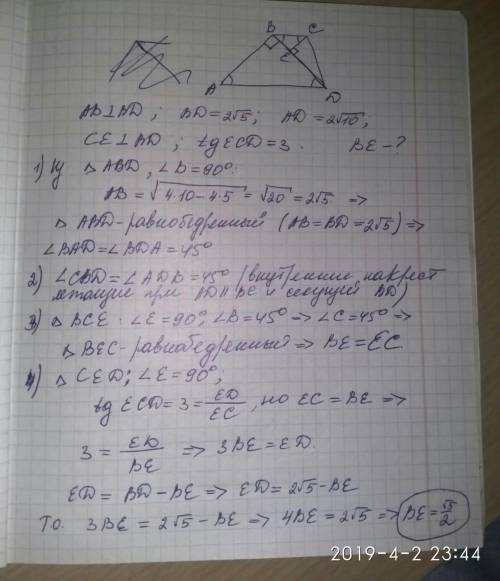 B C
E
A D
AB⊥AD ; BD=2√5; AD=2√10;
CE⊥BD ; tg ECD=3. BE-?
1) Из △ABD, ∠B=90°:
AB = √4·10-4·5 = √20 = 2√5 =>
△ABD-равнобедренный (AB=BD=2√5) =>
∠BAD=∠BDA=45°
2) ∠CBD=∠ADB=45° (внутренние накрест
лежащие при AD∥BC и секущей BD)
3) △BCE. ∠E=90°, ∠B=45° => ∠C=45° =>
△BEC-равнобедренный => BE=EC
4) △CED; ∠E=90°;
tg ECD=3=ED/EC, но EC=BE =>
3 = ED/BE => 3BE=ED.
ED = BD-BE => ED=2√5-BE
ТО. 3BE=2√5-BE => 4BE=2√5 => BE=√5/2
2019-4-2 23:44